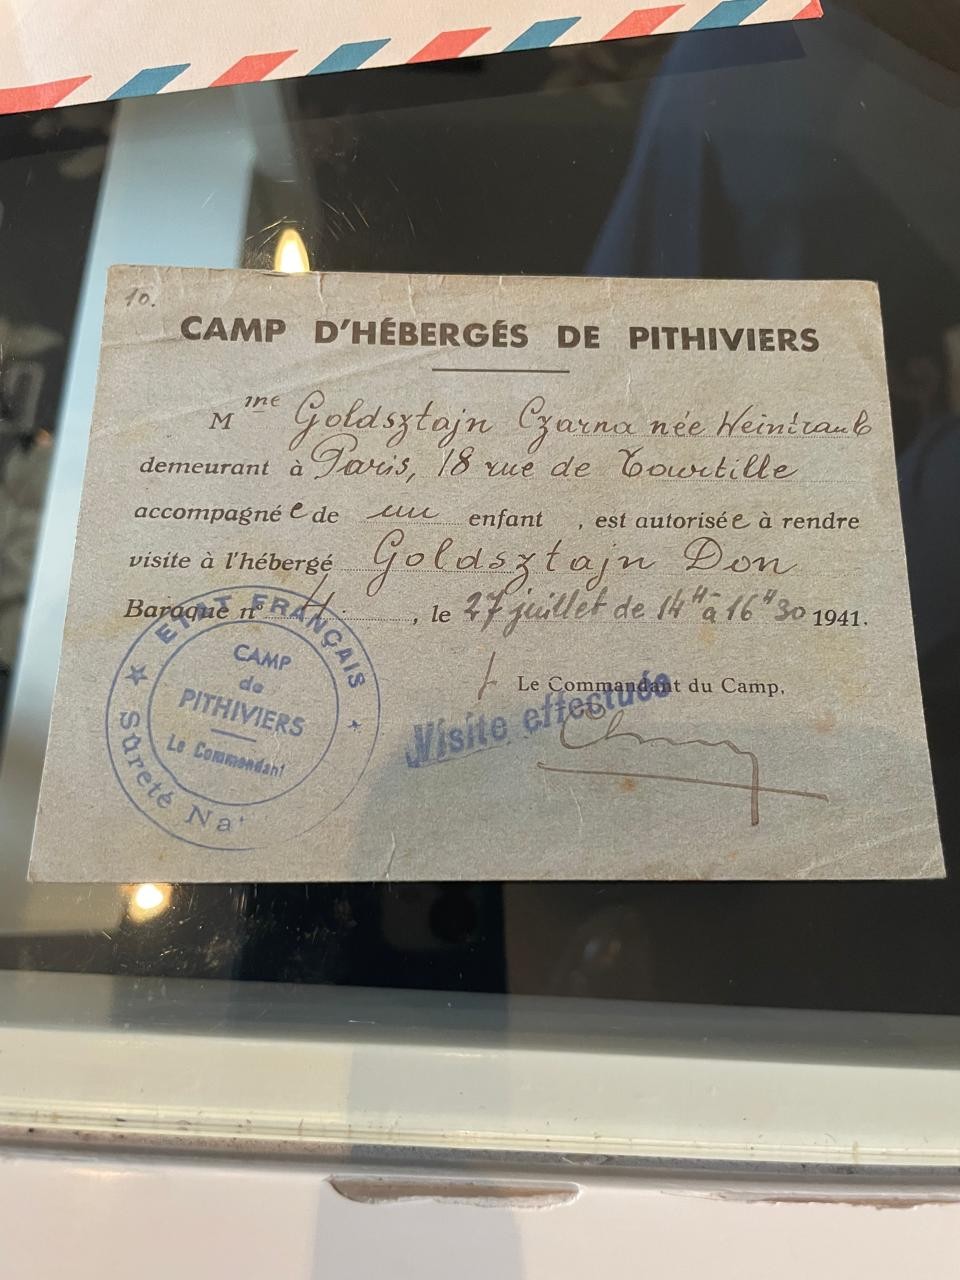 10.
CAMP D'HÉBERGÉS DE PITHIVIERS
Mme Goldsztajn Czarna née Weintraub
demeurant à Paris, 18 rue de Tourtille
accompagnée de un enfant , est autorisée à rendre
visite à l'hébergé Goldsztajn Don
Baraque n° 4 , le 27 juillet de 14H à 16H30 1941.
Le Commandant du Camp,
Visite effectuée
ETAT FRANÇAIS
CAMP
de
PITHIVIERS
Le Commandant
Sûreté Na